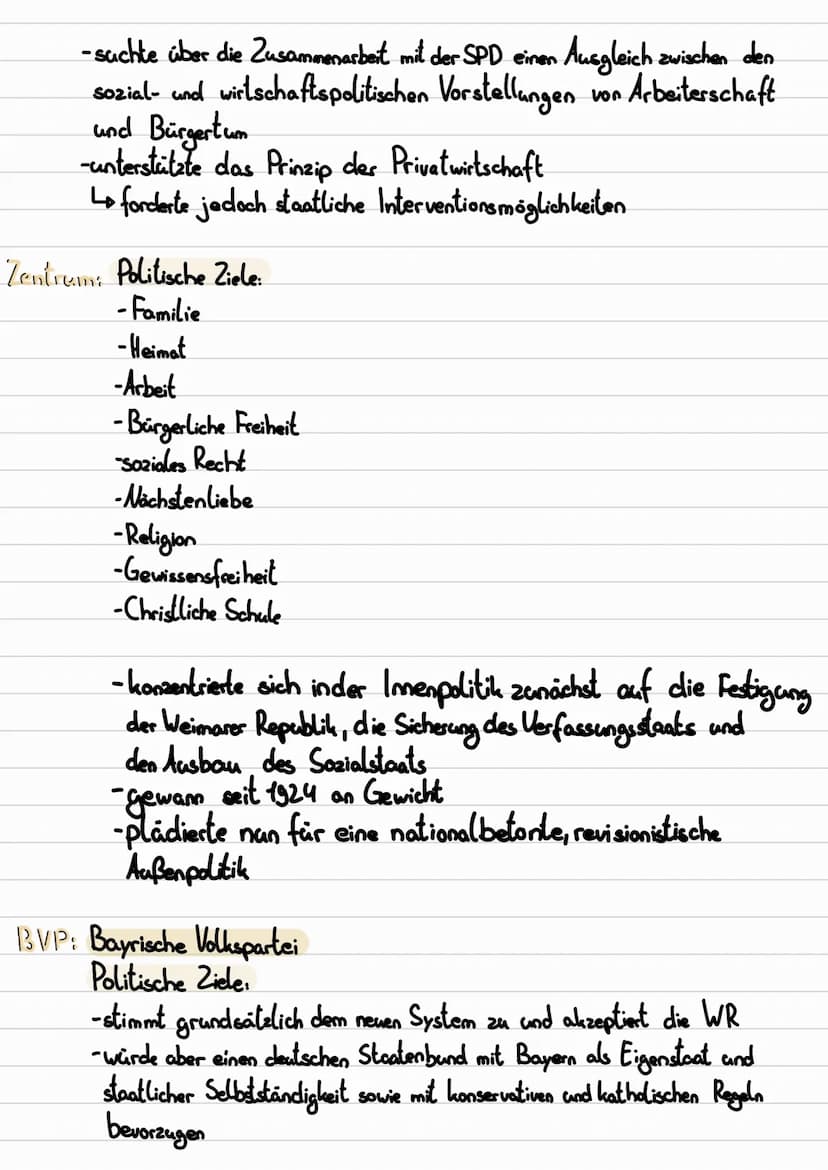 -suchte über die Zusammenarbeit mit der SPD einen Ausgleich zwischen den
sozial- und wirtschaftspolitischen Vorstellungen von Arbeiterschaft
und Bürgertum
-unterstützte das Prinzip der Privatwirtschaft
↳ forderte jedoch staatliche Interventionsmöglichkeiten
Zentrum: Politische Ziele:
-Familie
-Heimat
-Arbeit
-Bürgerliche Freiheit
-soziales Recht
-Nächstenliebe
-Religion
-Gewissensfreiheit
-Christliche Schule
-konzentrierte sich in der Innenpolitik zunächst auf die Festigung
der Weimarer Republik, die Sicherung des Verfassungsstaats und
den Ausbau des Sozialstaats
-gewann seit 1924 an Gewicht
-plädierte nun für eine nationalbetonte, revisionistische
Außenpolitik
BVP: Bayrische Volkspartei
Politische Ziele:
-stimmt grundsätzlich dem neuen System zu und akzeptiert die WR
-würde aber einen deutschen Staatenbund mit Bayern als Eigenstaat und
staatlicher Selbstständigkeit sowie mit konservativen und katholischen Regeln
bevorzugen